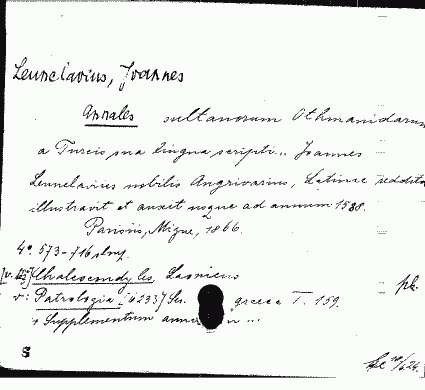 Leunclavius, Joannes
Annales sultanorum Othmanidarum
a Turcis sua lingua scripti.. Joannes
Leunclavius nobilis Angrivarius, Latine reddito
illustravit et auxit usque ad annum 1588.
Parisiis, Migne, 1866.
4° 573-716
Chalcocondyles, Laonicus
v: Patrologia Ser. graeca T. 159.
+ Supplementum
S